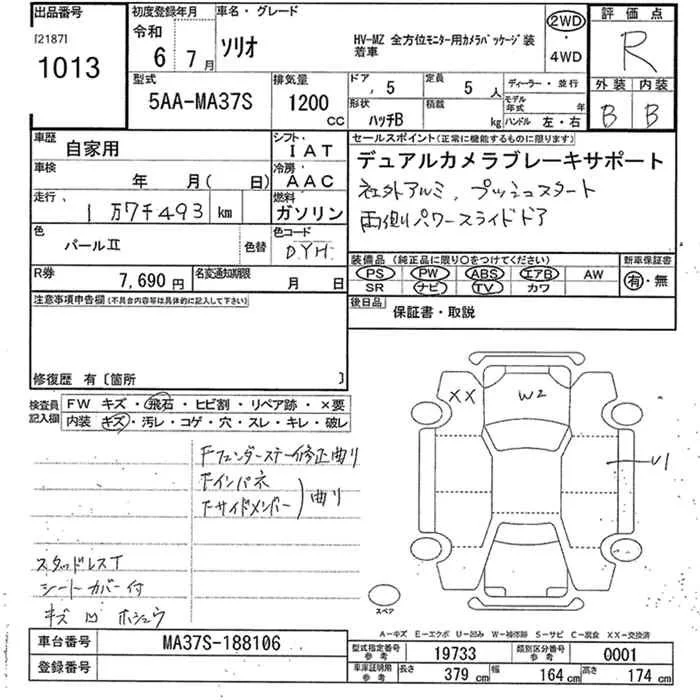 出品番号
[2187]
1013
初度登録年月
令和
6 7月
車名・グレード
ソリオ
HV-MZ 全方位モニター用カメラパッケージ装着車
2WD
・
4WD
評価点
R
外装 内装
B B
型式
5AA-MA37S
排気量
1200 CC
ドア 5
定員 5 人
形状
ハッチB
積載 kg
ディーラー・並行
モデル年式 年
ハンドル 左・右
車歴 自家用
シフト IAT
車検 年 月( 日)
冷房 AAC
走行 1万7千493 km
燃料 ガソリン
色 パールⅡ 色替
色コード DYH
R券 7,690円
名変通知期限 月 日
セールスポイント(正常に機能するものに限ります)
デュアルカメラブレーキサポート
社外アルミ、プッシュスタート
両側パワースライドドア
装備品(純正品に限り○をつけてください)
PS PW ABS エアB AW
SR ナビ TV カワ
新車保証書
有・無
後日品 保証書・取説
注意事項申告欄(不具合内容等は具体的に記入して下さい)
修復歴 有〔箇所 〕
検査員記入欄
FW キズ・飛石・ヒビ割・リペア跡・×要
内装 キズ・汚レ・コゲ・穴・スレ・キレ・破レ
Fフェンダーステー修正曲り
Fインパネ
Fサイドメンバー
曲り
スタッドレスT
シートカバー付
キズ 凹 ホシュウ
XX
W2
U1
スペア
A-キズ E-エクボ U-凹み W-補修跡 S-サビ C-腐食 XX-交換済
車台番号 MA37S-188106
登録番号
型式指定番号 参考 19733
類別区分番号 参考 0001
車庫証明用 参考
長さ 379 cm
幅 164 cm
高さ 174 cm